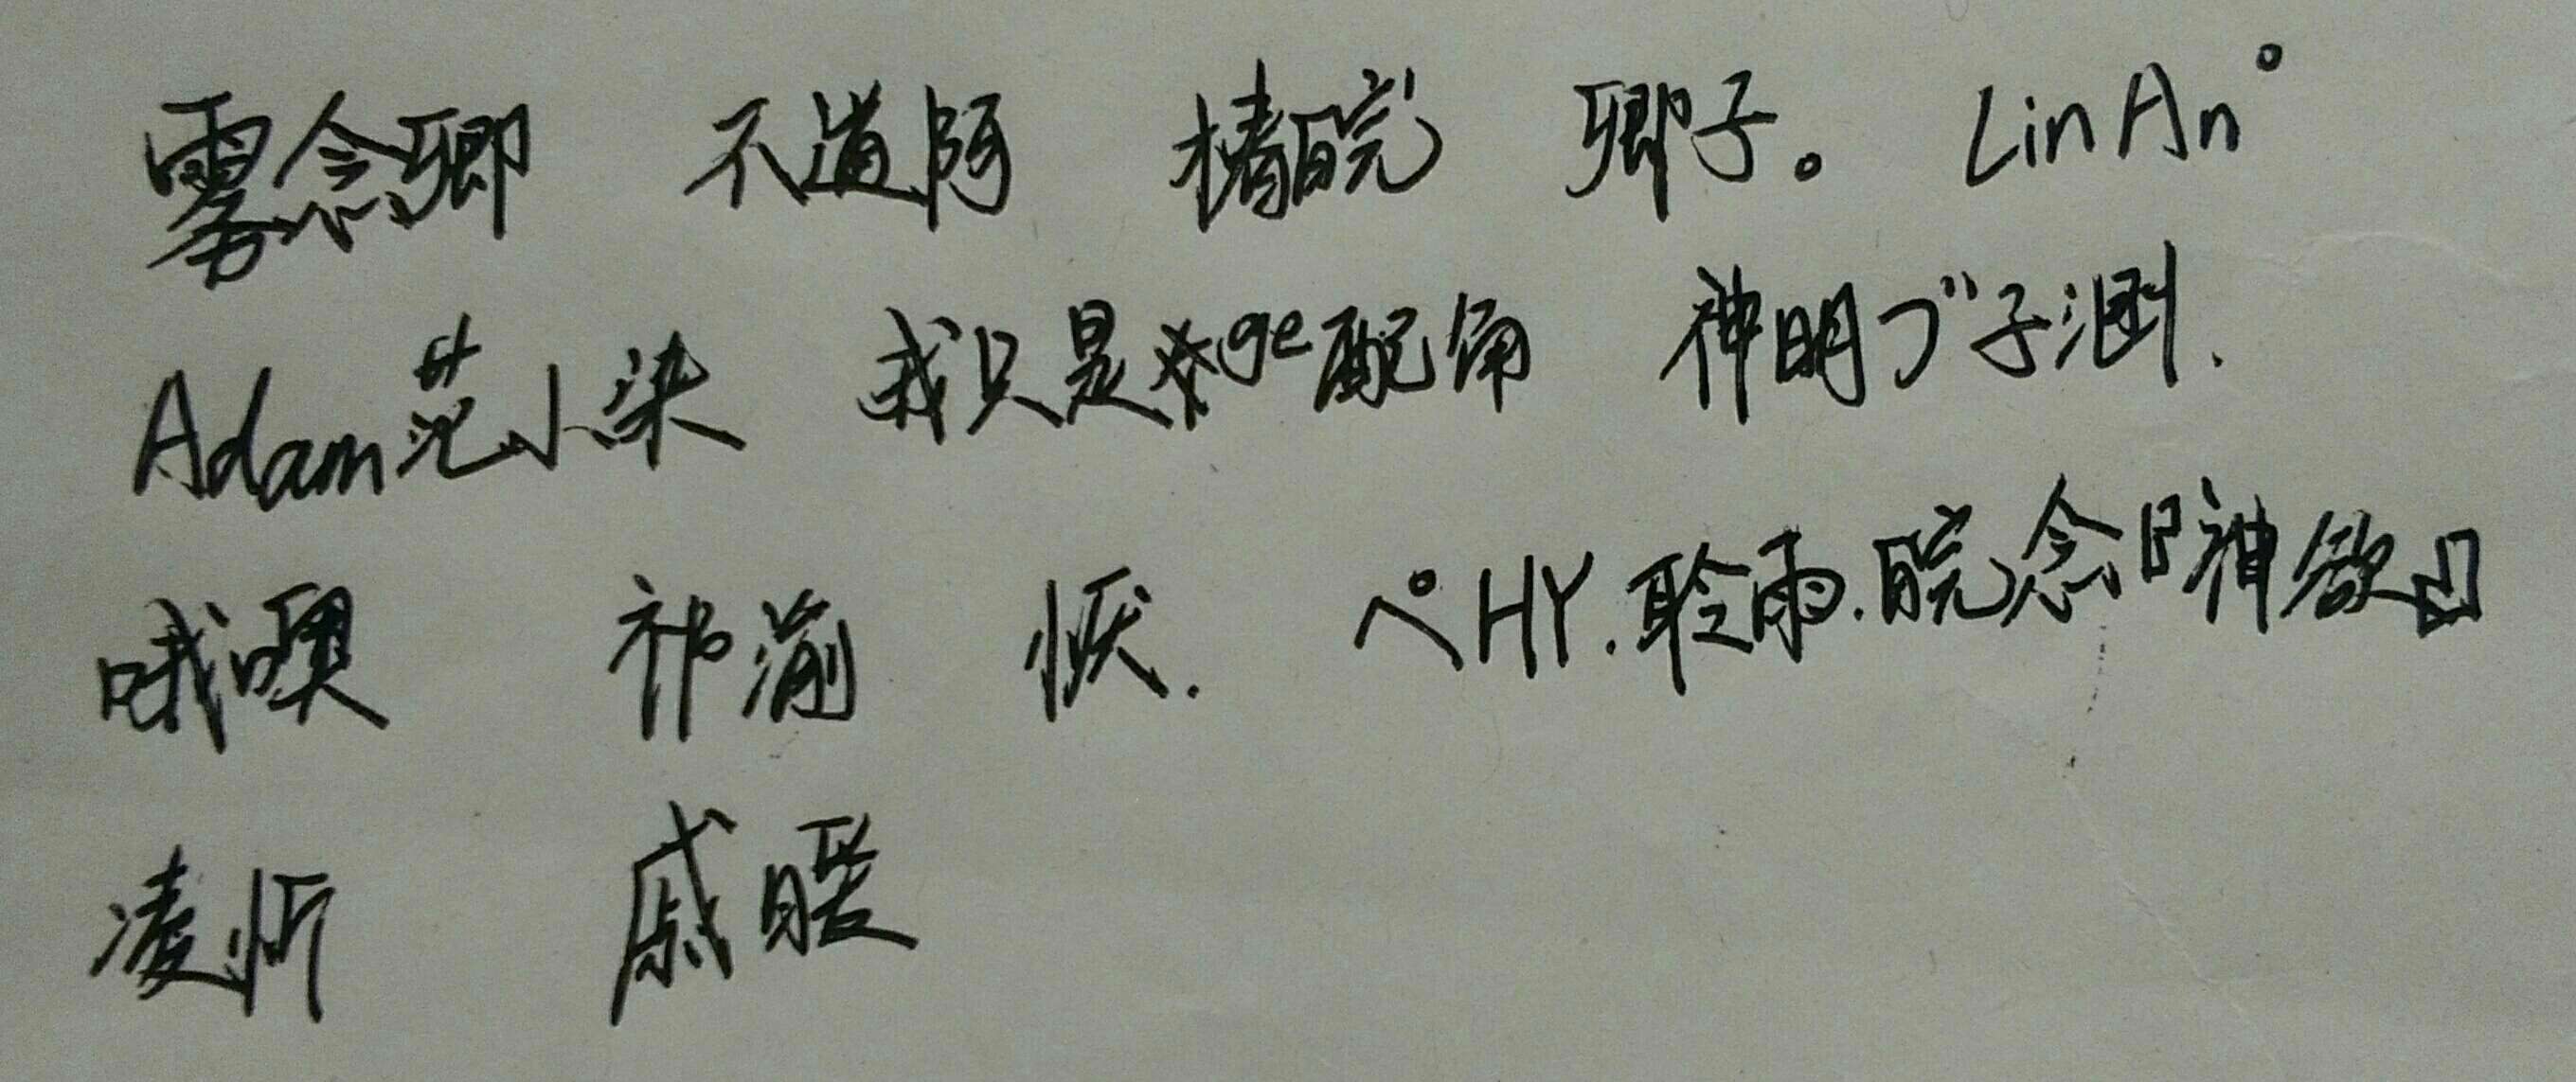 雾念卿 不道阿 椿皖 卿子。 LinAn°
Adam范小染 我只是ge配角 神明づ子渊.
哦噢 祁渝 恹. ペHY.聆雨.皖念『神欲』
凌忻 戚暖